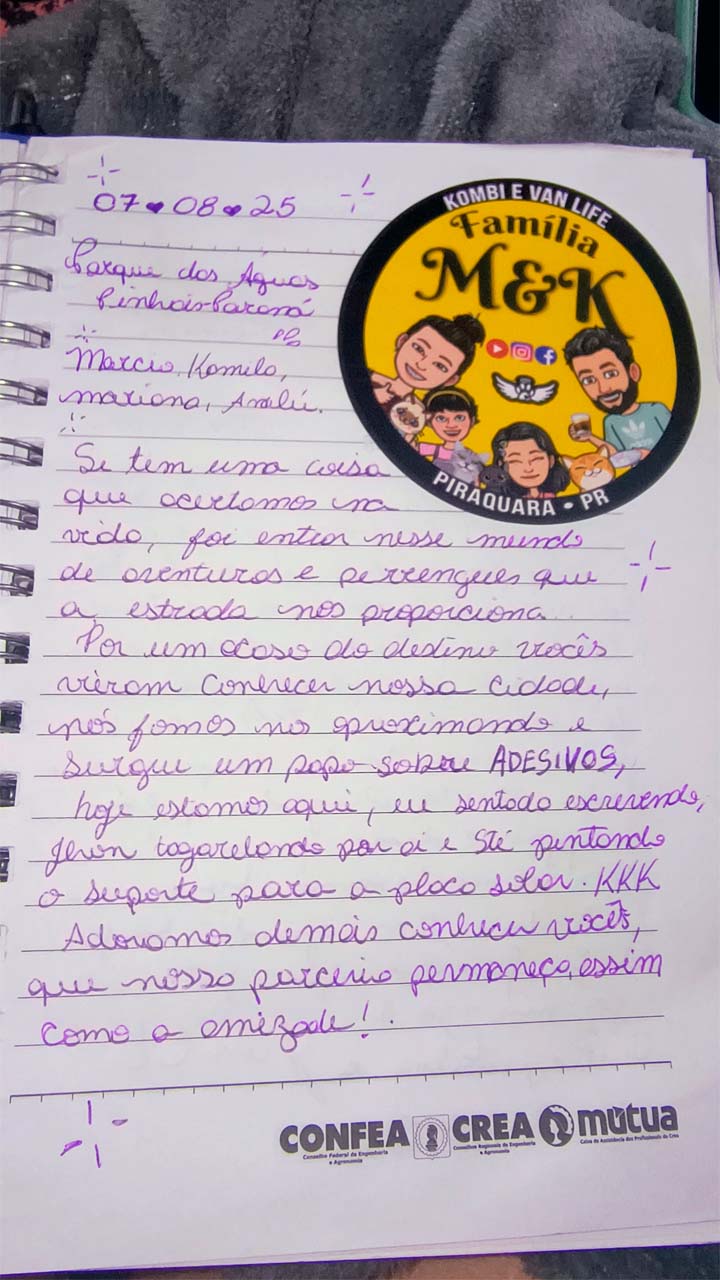 07 ♥ 08 ♥ 25
Parque das Águas
Pinhais-Paraná
PR
Marcio, Kamila,
mariana, Analú.
KOMBI E VAN LIFE
Família
M&K
PIRAQUARA • PR
Se tem uma coisa
que acertamos na
vida, foi entrar nesse mundo
de aventuras e perrengues que
a estrada nos proporciona...
Por um acaso do destino vocês
vieram conhecer nossa cidade,
nós fomos nos aproximando e
surgiu um papo sobre ADESIVOS,
hoje estamos aqui, eu sentado escrevendo,
tagarelando por ai e Sté pintando
o suporte para a placa solar. KKK
Adoramos demais conhecer vocês,
que nossa parceria permaneça, assim
como a amizade!.
CONFEA
Conselho Federal de Engenharia
e Agronomia
CREA
Conselhos Regionais de Engenharia
e Agronomia
mútua
Caixa de Assistência dos Profissionais do Crea